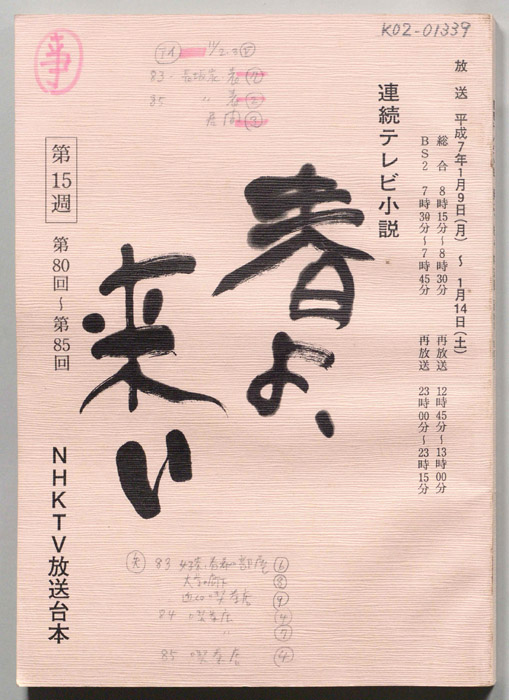 K02-01339
放送 平成7年1月9日(月) ~ 1月14日(土)
総合 8時15分~8時30分 再放送 12時45分~13時00分
BS2 7時30分~7時45分 再放送 23時00分~23時15分
連続テレビ小説
春よ、
来い
第15週
第80回~第85回
NHKTV放送台本
83
85
83
84
85 喫茶店 ④